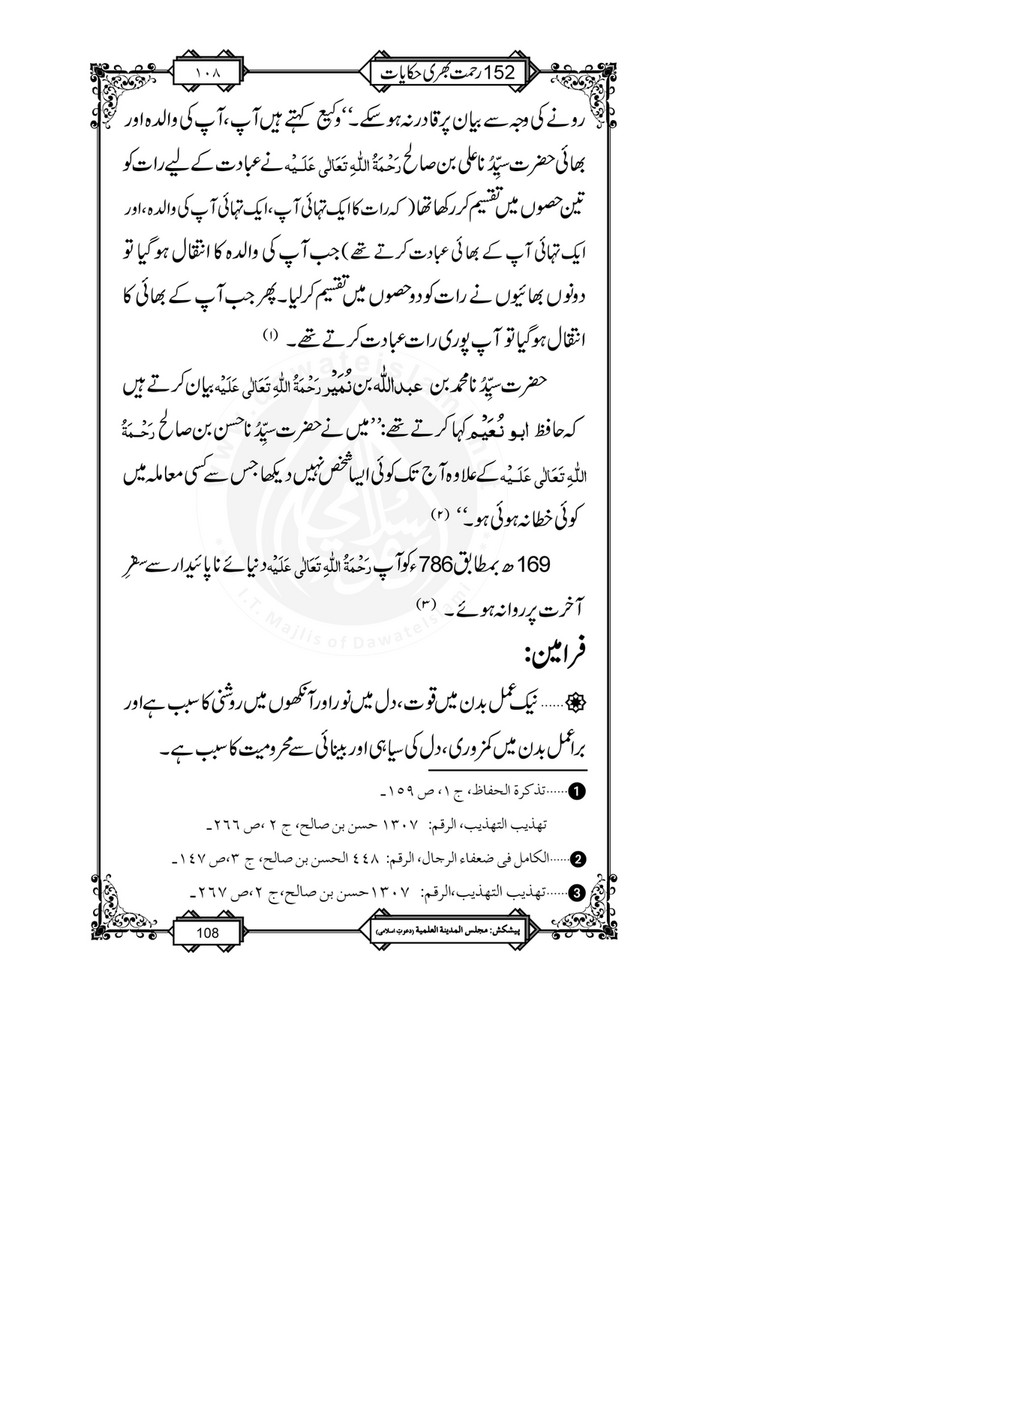 152 رحمت بھری حکایات
١٠٨
رونے کی وجہ سے بیان پر قادر نہ ہو سکے۔‘‘ وکیع کہتے ہیں آپ، آپ کی والدہ اور
بھائی حضرت سیِّدُنا علی بن صالح رَحْمَةُ اللّٰهِ تَعَالٰی عَلَـیْه نے عبادت کے لیے رات کو
تین حصوں میں تقسیم کر رکھا تھا (کہ رات کا ایک تہائی آپ، ایک تہائی آپ کی والدہ، اور
ایک تہائی آپ کے بھائی عبادت کرتے تھے) جب آپ کی والدہ کا انتقال ہوگیا تو
دونوں بھائیوں نے رات کو دو حصوں میں تقسیم کر لیا۔ پھر جب آپ کے بھائی کا
انتقال ہوگیا تو آپ پوری رات عبادت کرتے تھے۔ (۱)
حضرت سیِّدُنا محمد بن عبداللّٰه بن نُمَیْر رَحْمَةُ اللّٰهِ تَعَالٰی عَلَیْه بیان کرتے ہیں
کہ حافظ ابو نُعَیْم کہا کرتے تھے: ’’میں نے حضرت سیِّدُنا حسن بن صالح رَحْـمَةُ
اللّٰهِ تَعَالٰی عَلَـیْه کے علاوہ آج تک کوئی ایسا شخص نہیں دیکھا جس سے کسی معاملہ میں
کوئی خطا نہ ہوئی ہو۔‘‘ (۲)
169ھ بمطابق 786ء کو آپ رَحْمَةُ اللّٰهِ تَعَالٰی عَلَیْه دنیائے ناپائیدار سے سفرِ
آخرت پر روانہ ہوئے۔ (۳)
فرامین:
...... نیک عمل بدن میں قوت، دل میں نور اور آنکھوں میں روشنی کا سبب ہے اور
برا عمل بدن میں کمزوری، دل کی سیاہی اور بینائی سے محرومیت کا سبب ہے۔
1......تذكرة الحفاظ، ج ١، ص ١٥٩۔
تهذيب التهذيب، الرقم: ١٣٠٧ حسن بن صالح، ج ٢، ص ٢٦٦۔
2......الكامل فى ضعفاء الرجال، الرقم: ٤٤٨ الحسن بن صالح، ج ٣، ص ١٤٧۔
3......تهذيب التهذيب، الرقم: ١٣٠٧ حسن بن صالح، ج ٢، ص ٢٦٧۔
پیشکش: مجلس المدینة العلمیة (دعوتِ اسلامی)
108
I.T. Majlis of Dawateislami